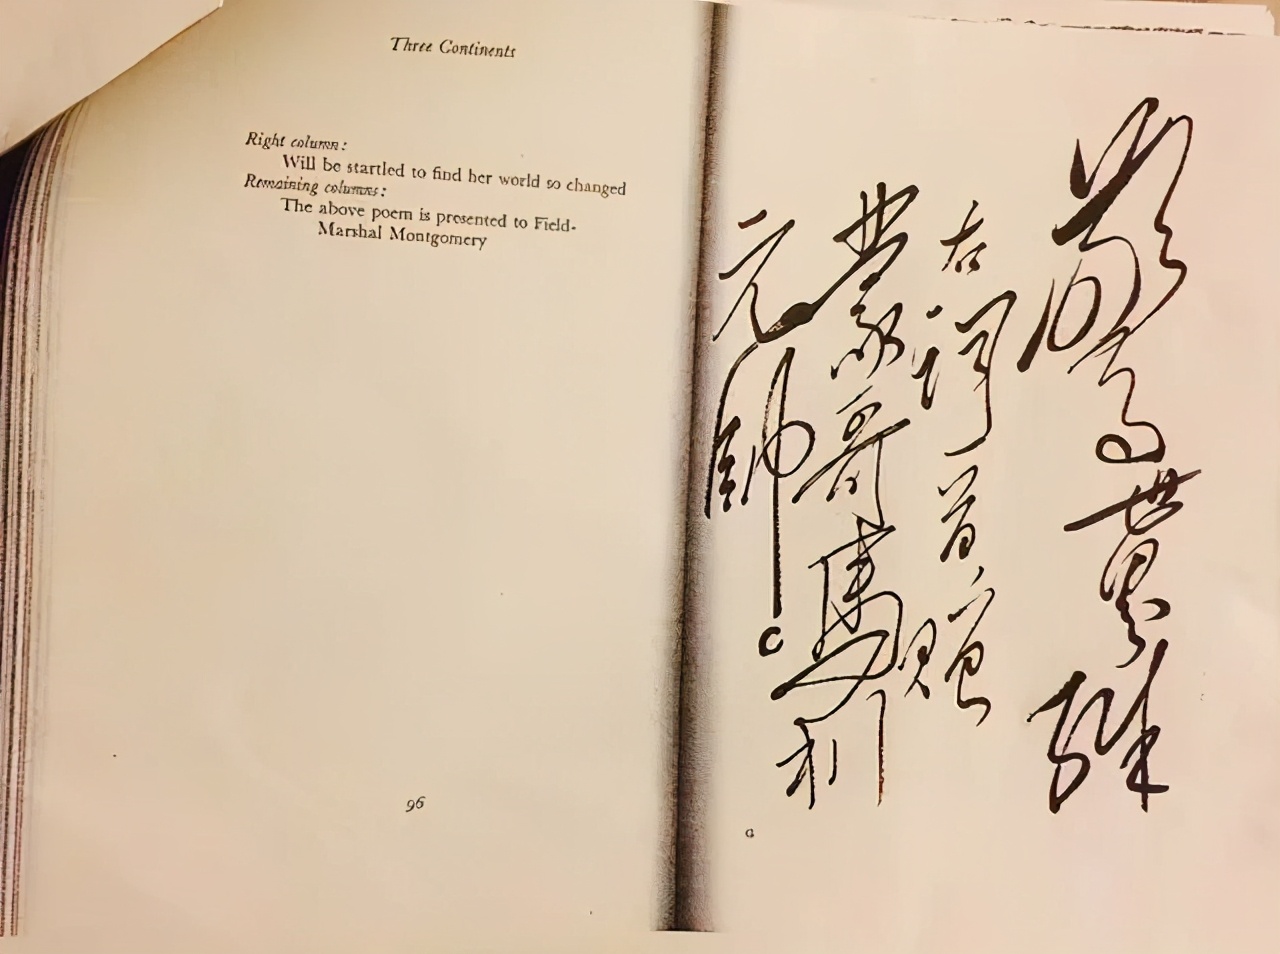 Three Continents
Right column:
Will be startled to find her world so changed
Remaining columns:
The above poem is presented to Field-
Marshal Montgomery
96
當驚世界殊
右詞首贈
蒙哥馬利
元帥
C
G